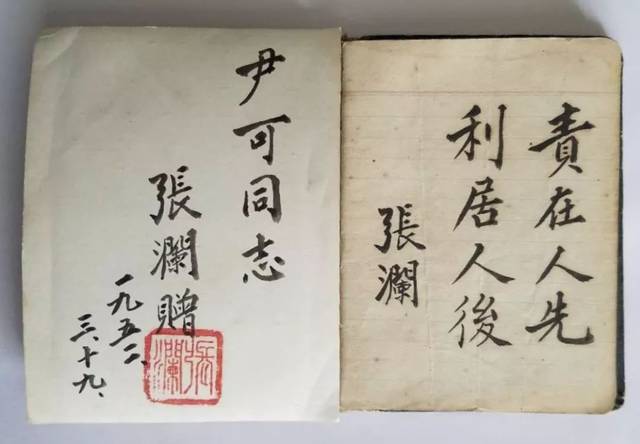 尹可同志
張瀾贈
一九五二、
三、十九、
張瀾
責在人先
利居人後
張瀾